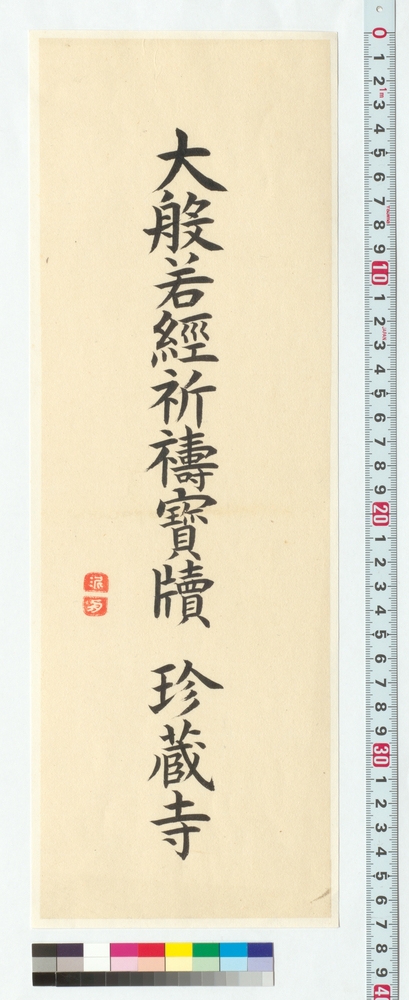 大般若經祈禱寶牘 珍蔵寺
0
1
2
1m
3
4
5
6
7
8
9
10
1
2
3
4
5
6
7
8
9
20
1
2
3
4
5
6
7
8
9
30
1
2
3
4
5
6
7
8
9